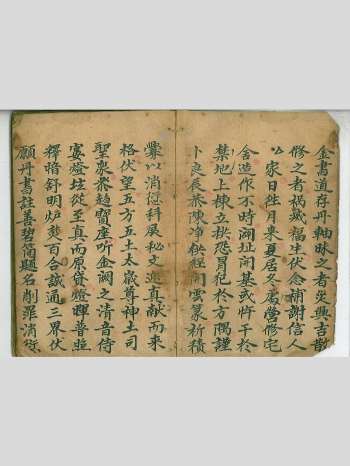 金書道存丹軸昧之者災興吉散
修之者禍滅福生伏念補謝信人
以家日往月来夏居冬處營修宅
舍造作不時淘扯開基或忤干於
禁地上棟立栱恐冒犯於方隅謹
卜良辰恭陳净供經開雲篆祈積
釁以消愆科展秘文迎真献而来
格伏望五方五土太歲尊神土司
聖衆來趋寳座听金闕之清音侍
宴燈坛從至真而原貸燈暉普照
釋滯舒明炉爇百合誠通三界伏
願丹書註善碧簡題名削罪消